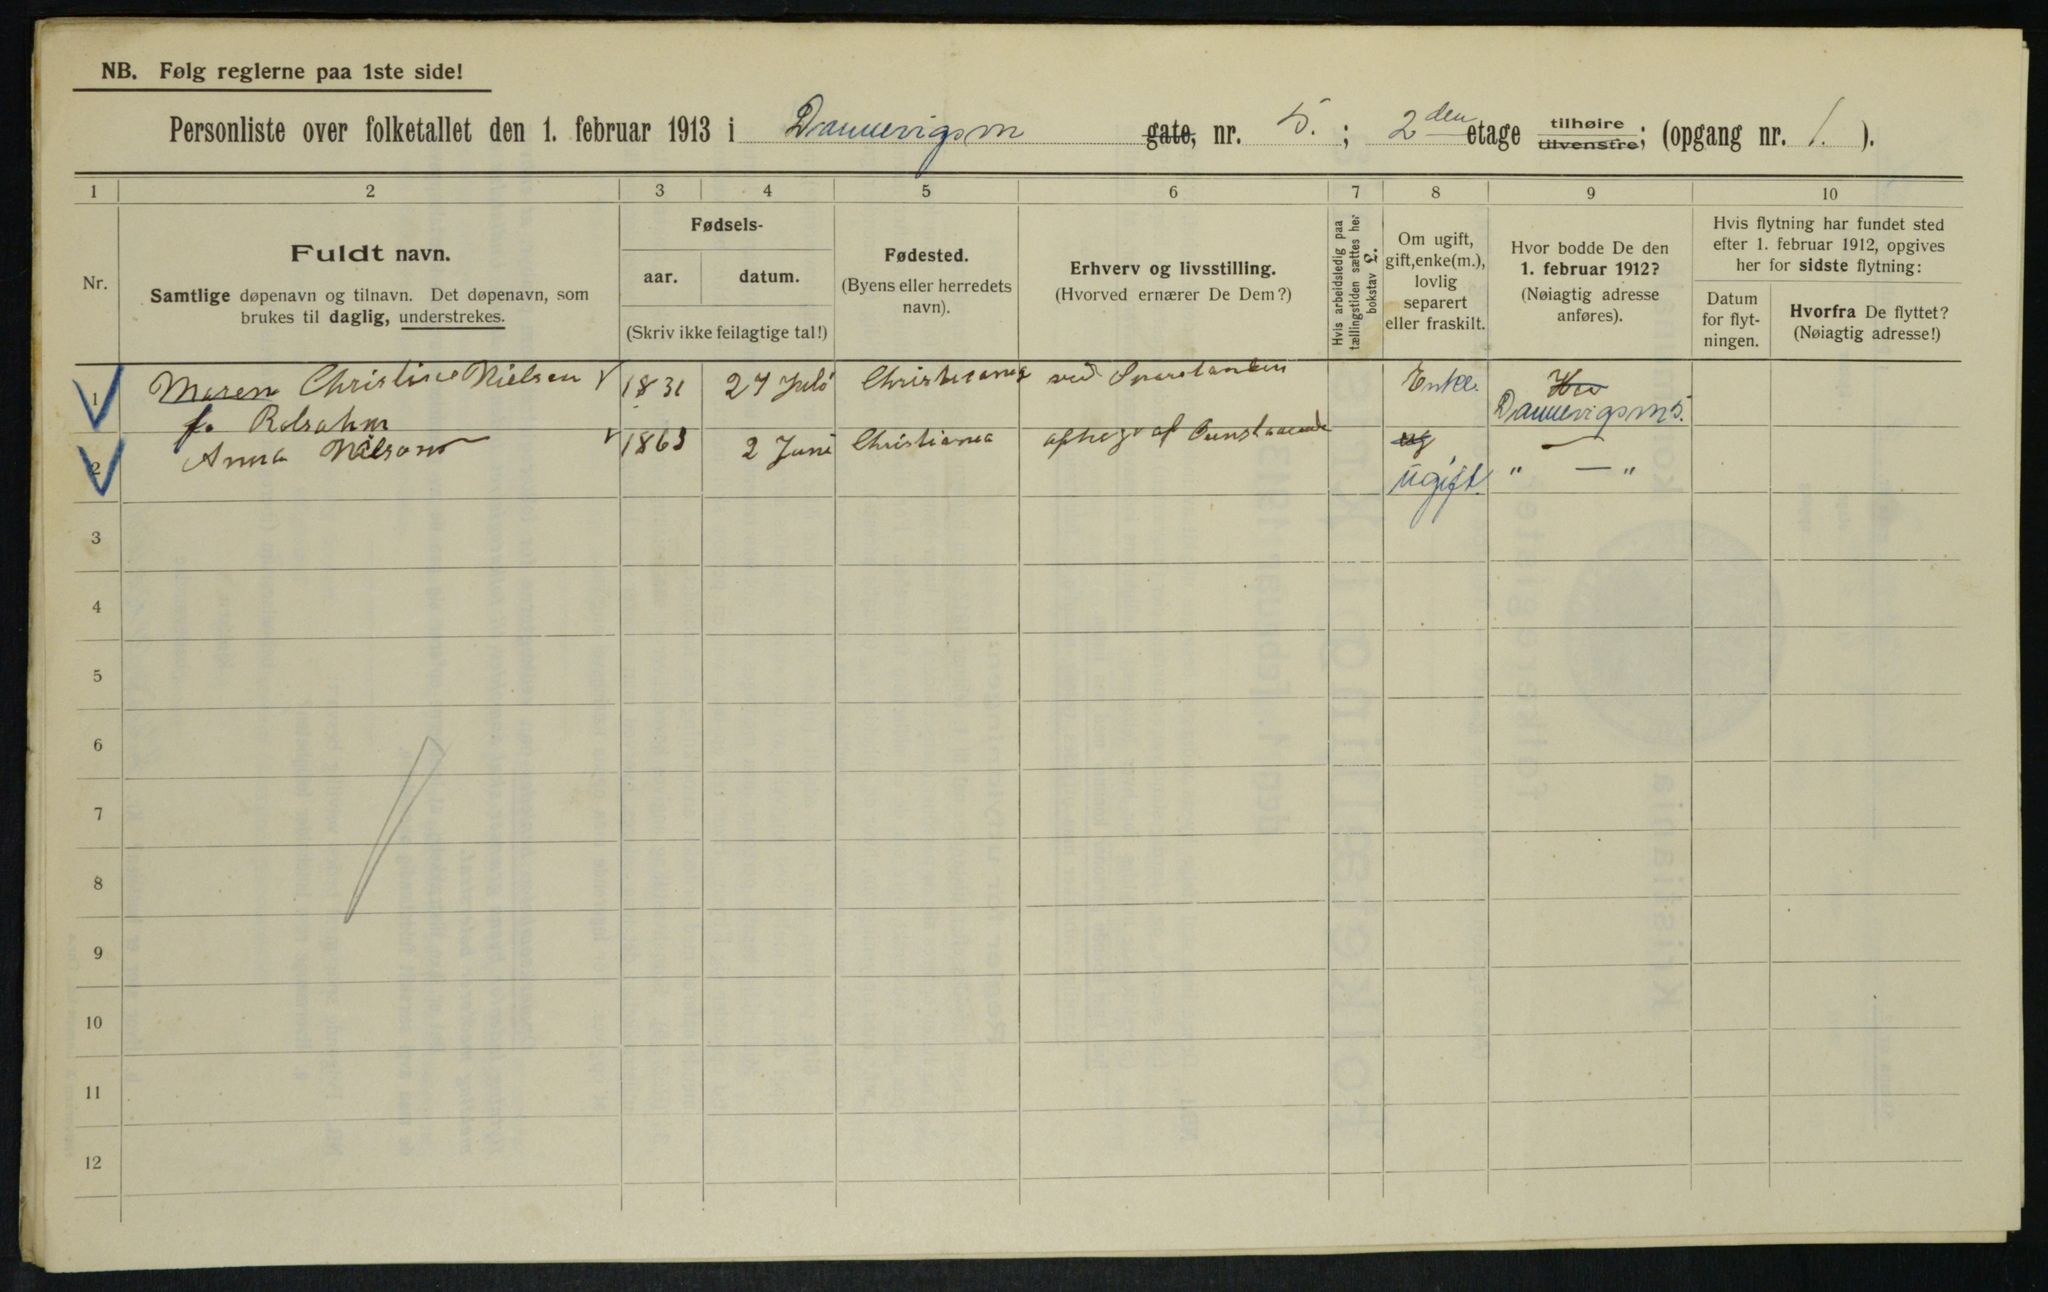 NB. Følg reglerne paa 1ste side!
Personliste over folketallet den 1. februar 1913 i Dannevigsvn gate, nr. 5. ; 2den etage tilhøire tilvenstre; (opgang nr. 1. ).
1 2 3 4 5 6 7 8 9 10
Nr.
Fuldt navn.
Samtlige døpenavn og tilnavn. Det døpenavn, som
brukes til daglig, understrekes.
Fødsels-
aar. datum.
(Skriv ikke feilagtige tal!)
Fødested.
(Byens eller herredets
navn).
Erhverv og livsstilling.
(Hvorved ernærer De Dem?)
Hvis arbeidsledig paa
tællingstiden sættes her
bokstav L.
Om ugift,
gift, enke(m.),
lovlig
separert
eller fraskilt.
Hvor bodde De den
1. februar 1912?
(Nøiagtig adresse
anføres).
Hvis flytning har fundet sted
efter 1. februar 1912, opgives
her for sidste flytning:
Datum
for flyt-
ningen.
Hvorfra De flyttet?
(Nøiagtig adresse!)
1 Maren Christine Nielsen 1831 27 Juli Christiania ved Enke. Her
Dannevigsvn 5.
f.
2 Anna Nielsen 1863 2 Juni Christiania af ug
ugift. " — "
3
4
5
6
7
8
9
10
11
12